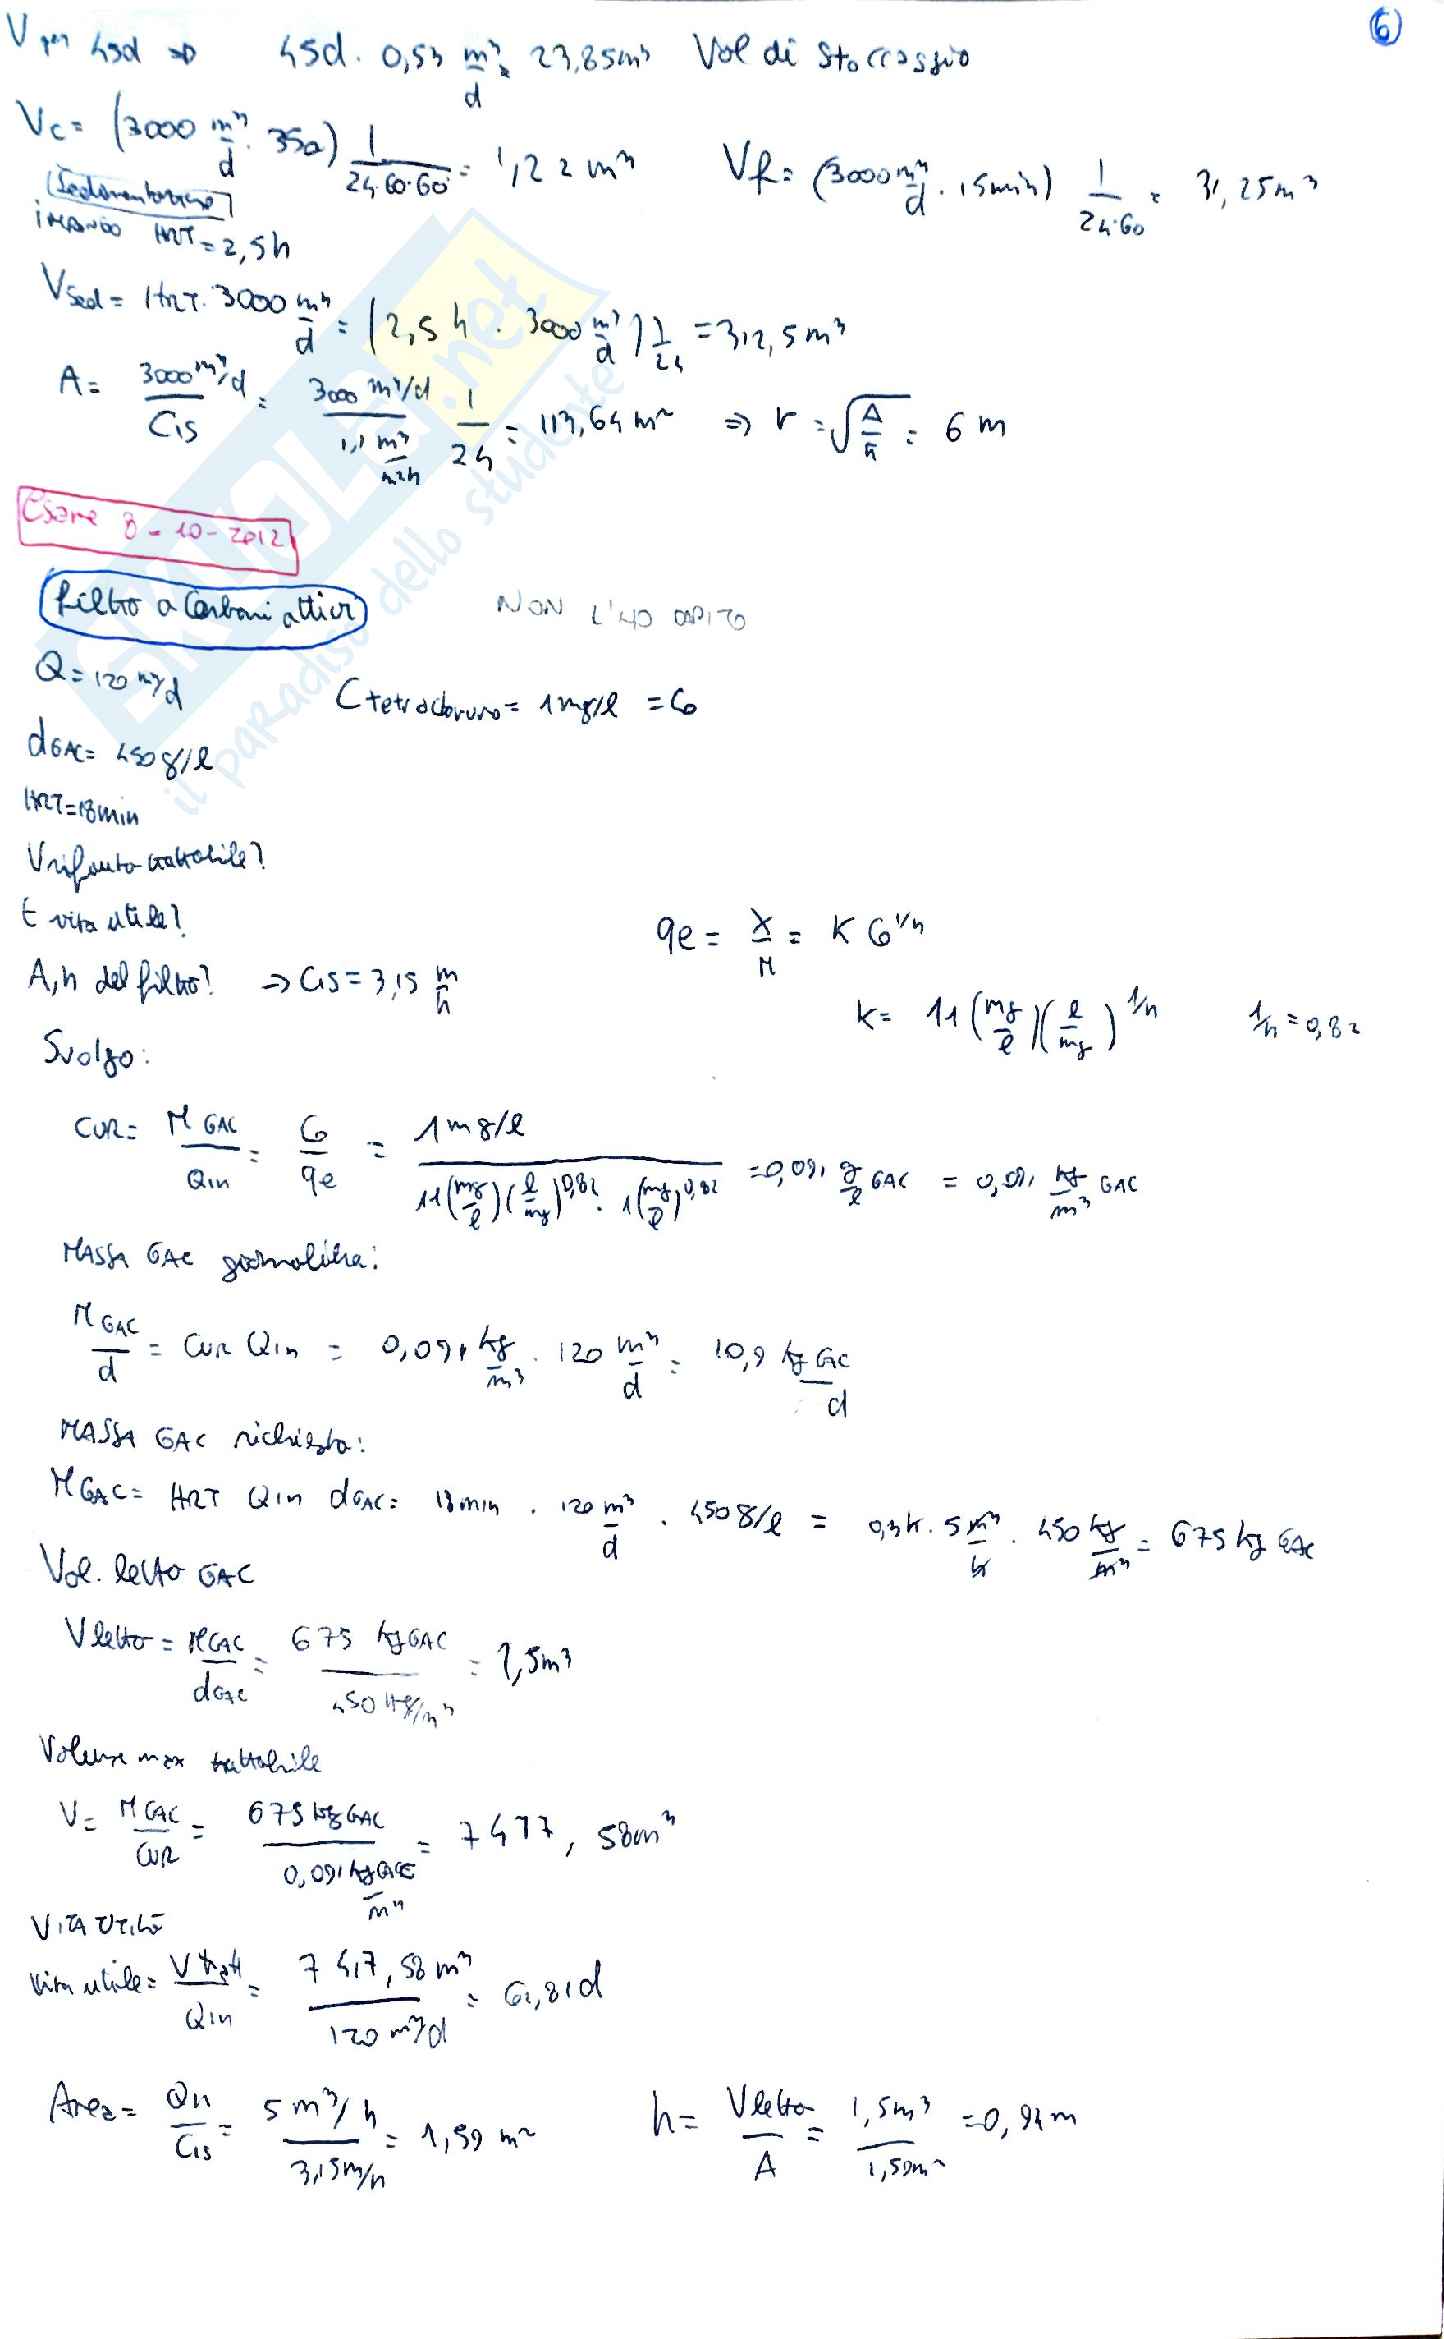 6
V per 45d ⇒ 45d · 0,53 m³/d = 23,85m³ Vol di stoccaggio
Vc = (3000 m³/d · 35s) 1/24·60·60 = 1,22 m³ Vf = (3000 m³/d · 15min) 1/24·60 = 31,25m³
Sedimentatore
HRT = 2,5h
Vsed = HRT · 3000 m³/d = (2,5 h · 3000 m³/d) 1/24 = 312,5m³
A = 3000 m³/d / Cis = 3000 m³/d / 1,1 m³/m²h 1/24 = 113,64 m² ⇒ r = √A/π = 6 m
Esame 8-10-2012
filtro a Carboni attivi NON L'HO CAPITO
Q = 120 m³/d
Ctetracloruro = 1mg/l = C0
dGAC = 450 g/l
HRT = 18min
V rifiuto trattabile?
t vita utile?
qe = X/M = K C0^1/n
A, h del filtro? ⇒ Cis = 3,15 m/h
K = 11 (mg/l)(l/mg)^1/n 1/n = 0,82
Svolgo:
CUR = MGAC/Qin = C0/qe = 1mg/l / 11(mg/l)(l/mg)^0,82 · 1(mg/l)^0,82 = 0,091 g/l GAC = 0,091 kg/m³ GAC
MASSA GAC giornaliera:
MGAC/d = CUR Qin = 0,091 kg/m³ · 120 m³/d = 10,9 kg GAC/d
MASSA GAC richiesta:
MGAC = HRT Qin dGAC = 18min · 120 m³/d · 450 g/l = 0,3h · 5 m³/h · 450 kg/m³ = 675 kg GAC
Vol. letto GAC
V letto = MGAC/dGAC = 675 kgGAC / 450 kg/m³ = 1,5m³
Volume max trattabile
V = MGAC/CUR = 675 kgGAC / 0,091 kgGAC/m³ = 7417,58m³
VITA UTILE
Vita utile = Vtratt/Qin = 7417,58 m³ / 120 m³/d = 61,81d
Area = Qin/Cis = 5 m³/h / 3,15m/h = 1,59 m² h = Vletto/A = 1,5m³ / 1,59m² = 0,94m
SKUOLA.net
il paradiso dello studente